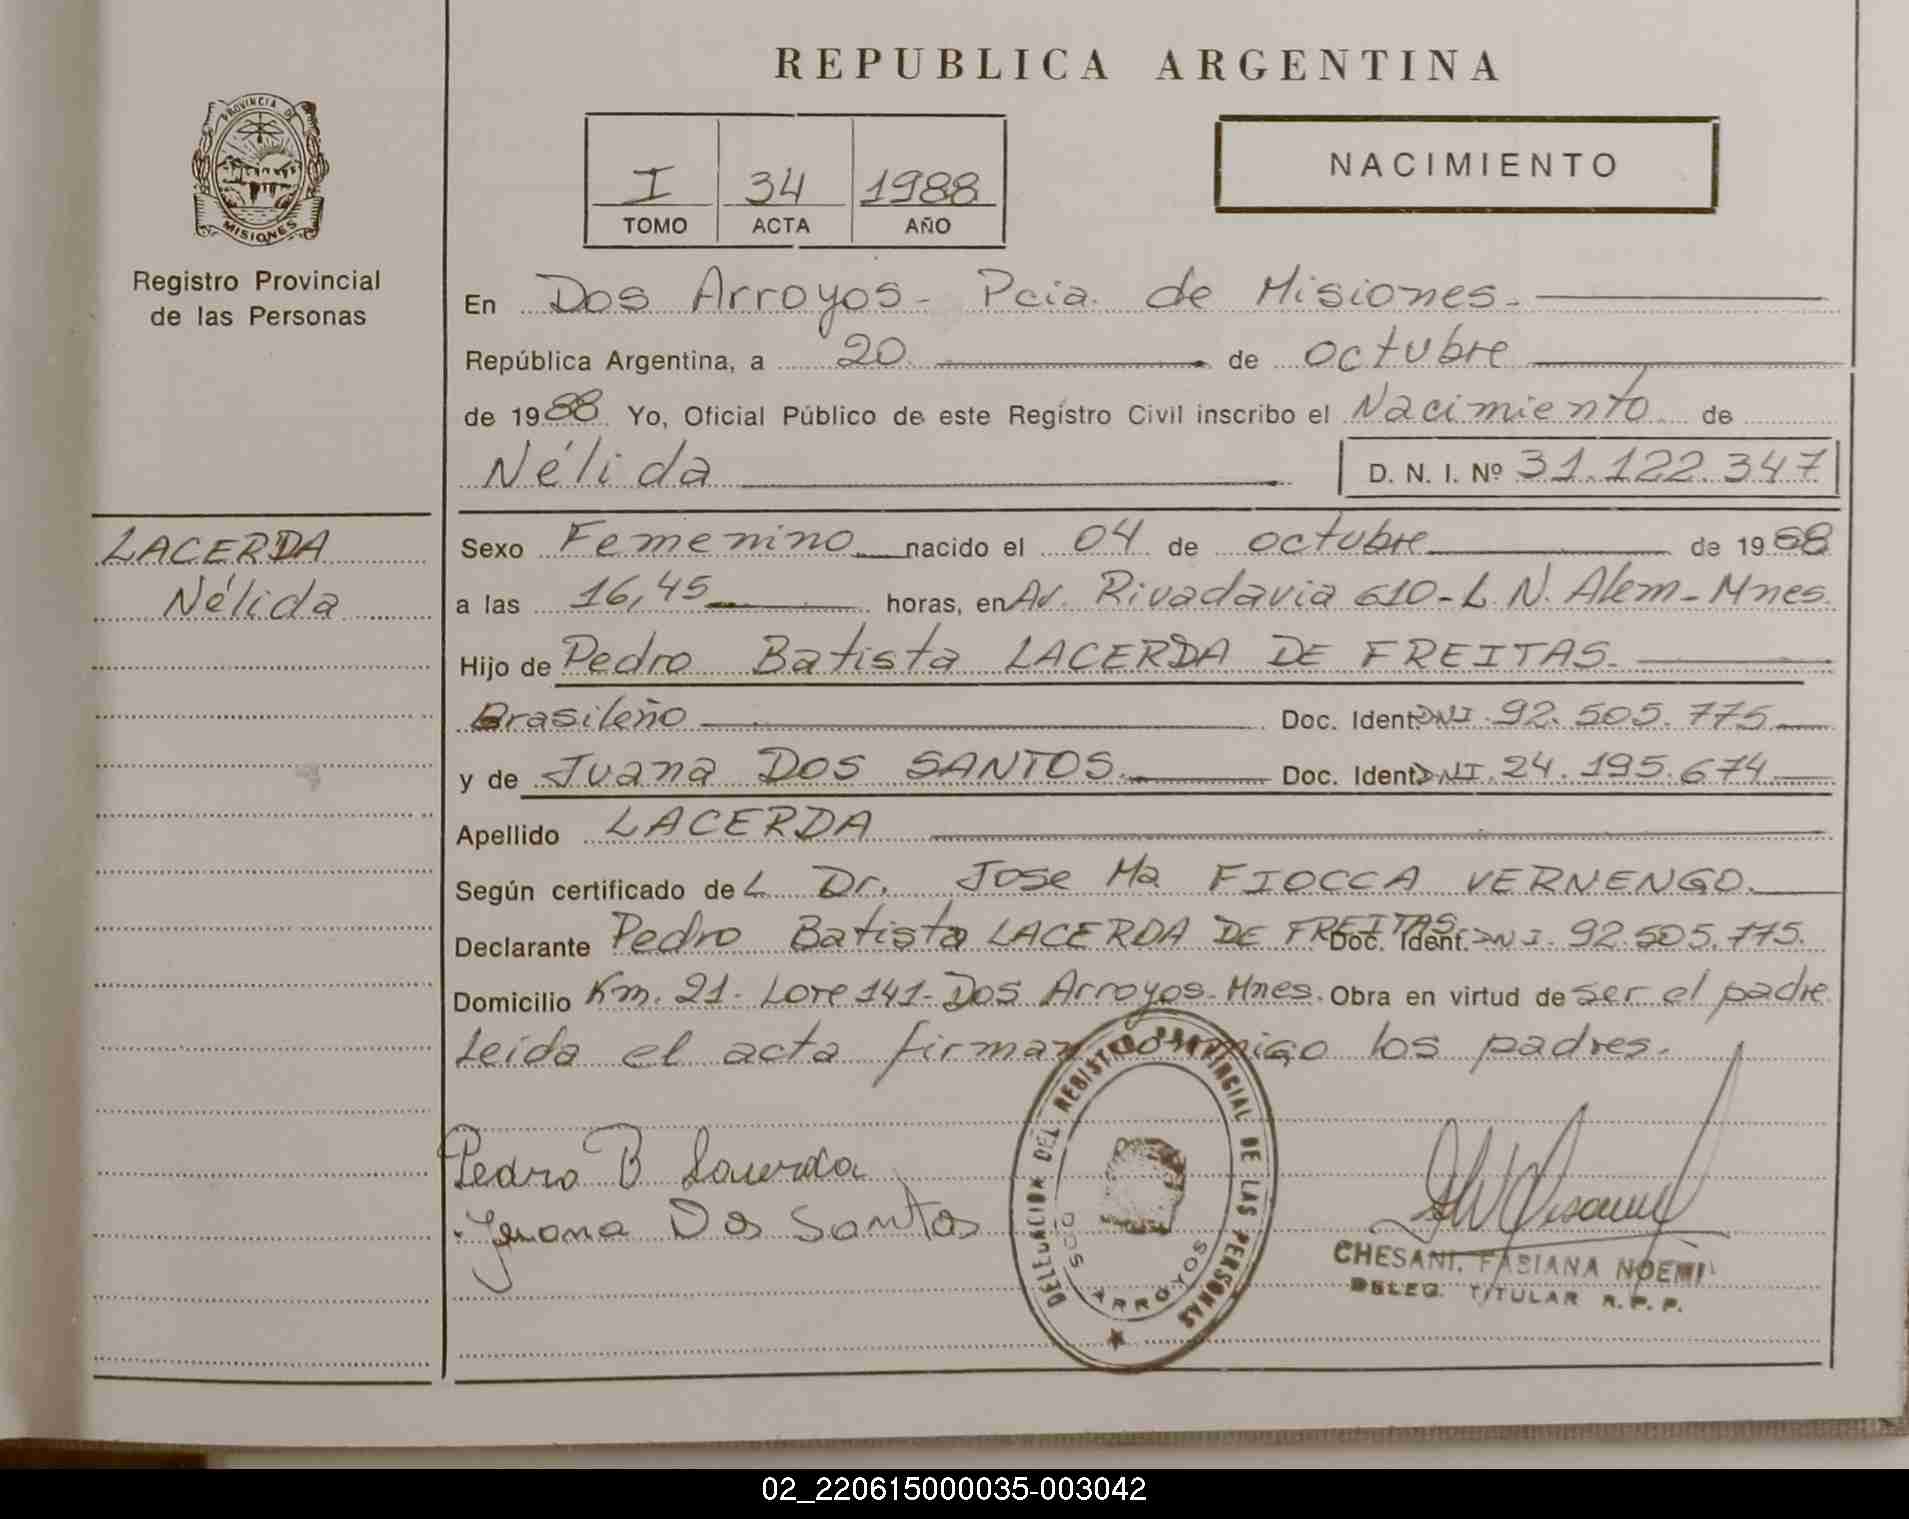 REPUBLICA ARGENTINA
PROVINCIA DE
MISIONES
Registro Provincial
de las Personas
I 34 1988
TOMO ACTA AÑO
NACIMIENTO
En Dos Arroyos - Pcia. de Misiones.
República Argentina, a 20 de octubre
de 1988 Yo, Oficial Público de este Registro Civil inscribo el Nacimiento de
Nélida D. N. I. Nº 31.122.347
LACERDA
Nélida
Sexo Femenino nacido el 04 de octubre de 1988
a las 16,45 horas, en Av. Rivadavia 610-L.N. Alem-Mnes.
Hijo de Pedro Batista LACERDA DE FREITAS.
Brasileño Doc. Ident. DNI. 92.505.775
y de Juana DOS SANTOS. Doc. Ident. DNI. 24.195.674
Apellido LACERDA
Según certificado del Dr. Jose Ma FIOCCA VERNENGO.
Declarante Pedro Batista LACERDA DE FREITAS. Doc. Ident. DNI. 92.505.775.
Domicilio Km. 21- Lote 141- Dos Arroyos- Mnes. Obra en virtud de ser el padre
Leída el acta firman conmigo los padres.
Pedro B Lacerda
Juana Dos Santos
DELEGACION DEL REGISTRO PROVINCIAL DE LAS PERSONAS
DOS ARROYOS
CHESANI, FABIANA NOEMI
DELEG. TITULAR R.P.P.
02_220615000035-003042